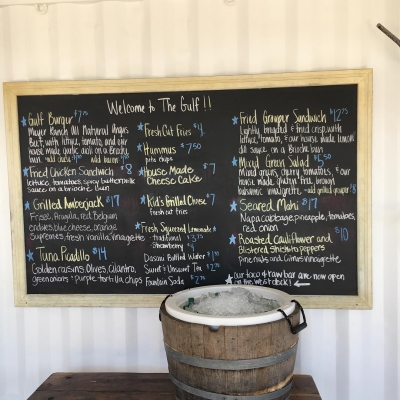 Welcome to The Gulf !!
Gulf Burger $7.75
Meyer Ranch All Natural Angus
Beef, with lettuce, tomato, and our
house made garlic aioli on a Brioche
bun. add cheese add bacon
Fried Chicken Sandwich $8
lettuce, tomatoes, spicy buttermilk
sauce on a brioche bun
Grilled Amberjack $17
Frisee, Arugula, red Belgium
endives, blue cheese, orange
Supremes, fresh vanilla vinaigrette
Tuna Picadillo $14
Golden raisins, Olives, Cilantro,
green onions + purple tortilla chips
Fresh Cut Fries $4
Hummus $7.50
pita chips
House Made $7
Cheese Cake
Kid's Grilled Cheese $7
fresh cut fries
Fresh Squeezed Lemonade
traditional $3
Strawberry
Dasani Bottled Water
Sweet & Unsweet Tea
Fountain Soda
Fried Grouper Sandwich $12.75
Lightly breaded & fried crisp, with
lettuce, tomato, & our house made lemon
dill sauce on a Brioche bun
Mixed Green Salad $5.50
Mixed greens, cherry tomatoes, & our
house made gluten free brown
balsamic vinaigrette. add grilled grouper
Seared Mahi $17
Napa cabbage, pineapple, tomatoes,
red onion
Roasted Cauliflower and $10
Blistered Shishito peppers
pine nuts, and Citrus Vinaigrette
our taco & raw bar are now open
on the west dock!